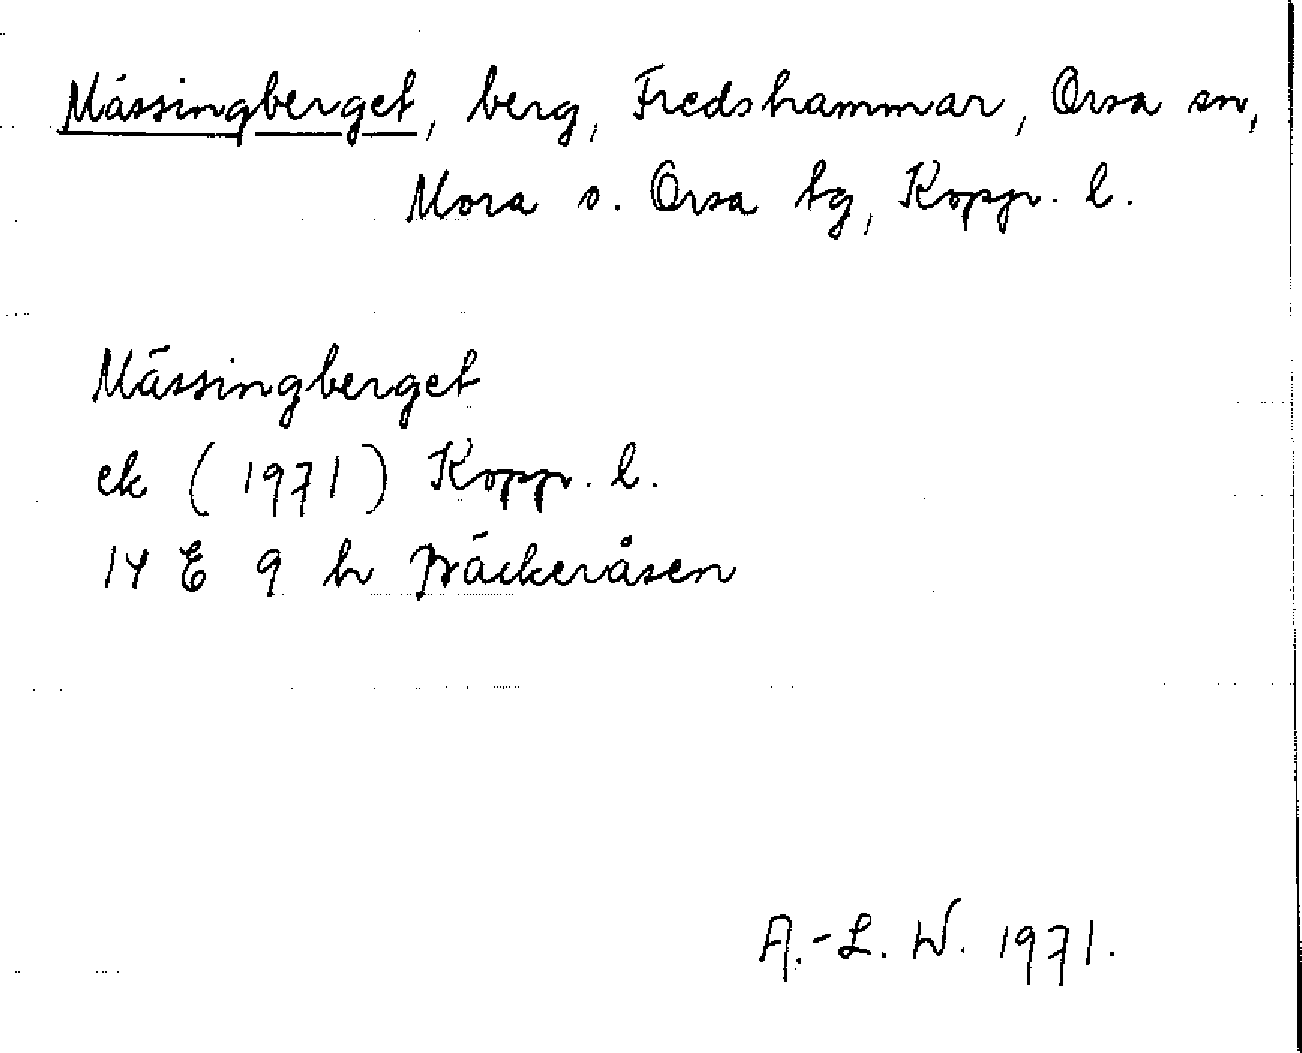 Mässingberget, berg, Fredshammar, Orsa sn,
Mora o. Orsa tg, Koppr. l.
Mässingberget
ek (1971) Koppr. l.
14 E 9 h Präckeråsen
A.-L. W. 1971.